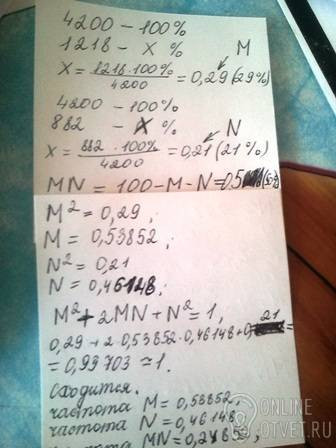 4200 – 100%
1218 – x %
M
x = 1218·100% / 4200 = 0,29 (29%)
4200 – 100%
882 – x %
N
x = 882·100% / 4200 = 0,21 (21%)
MN = 100 – M – N = 0,5
M² = 0,29,
M = 0,53852;
N² = 0,21
N = 0,46148;
M² + 2MN + N² = 1,
0,29 + 2·0,53852·0,46148 + 0,21 =
= 0,99703 ≃ 1.
Сходится.
частота M = 0,53852,
частота N = 0,46148,
MN = 0,24852,
ONLINE
OTVET.RU